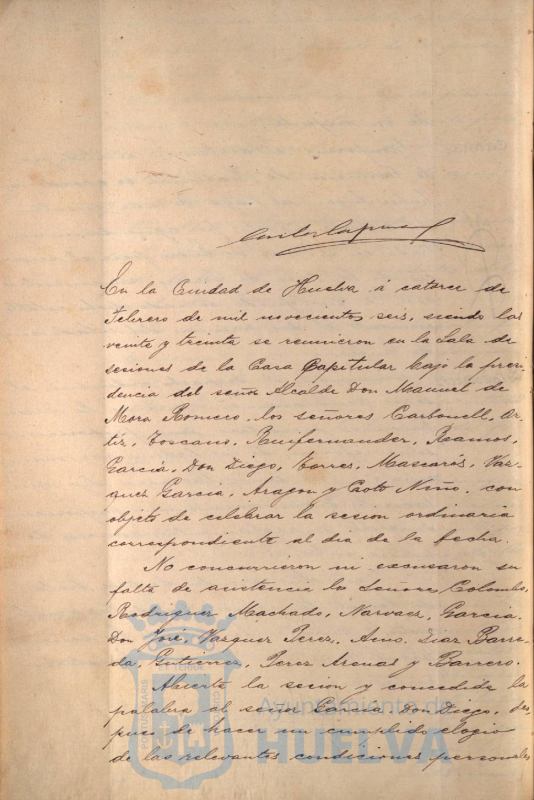 En la Ciudad de Huelva á catorce de
Febrero de mil novecientos seis, siendo las
veinte y treinta se reunieron en la Sala de
sesiones de la Casa Capitular bajo la presi
dencia del señor Alcalde Don Manuel de
Mora Romero, los señores Carbonell, Or-
tiz, Toscano, Ruifernandez, Ramos,
García, Don Diego, Torres, Mascarós, Vaz-
quez García, Aragon y Coto Niño, con
objeto de celebrar la sesion ordinaria
correspondiente al dia de la fecha.
No concurrieron ni excusaron su
falta de asistencia los Señores Colombo,
Rodriguez Machado, Narvaez, García,
Don José, Vazquez Perez, Diaz Barre-
da, Gutierrez, Perez Arenas y Barrero.
Abierta la sesion y concedida la
palabra al señor García Don Diego, des
pues de hacer un cumplido elogio
de las relevantes condiciones personales
Ayuntamiento de
HUELVA